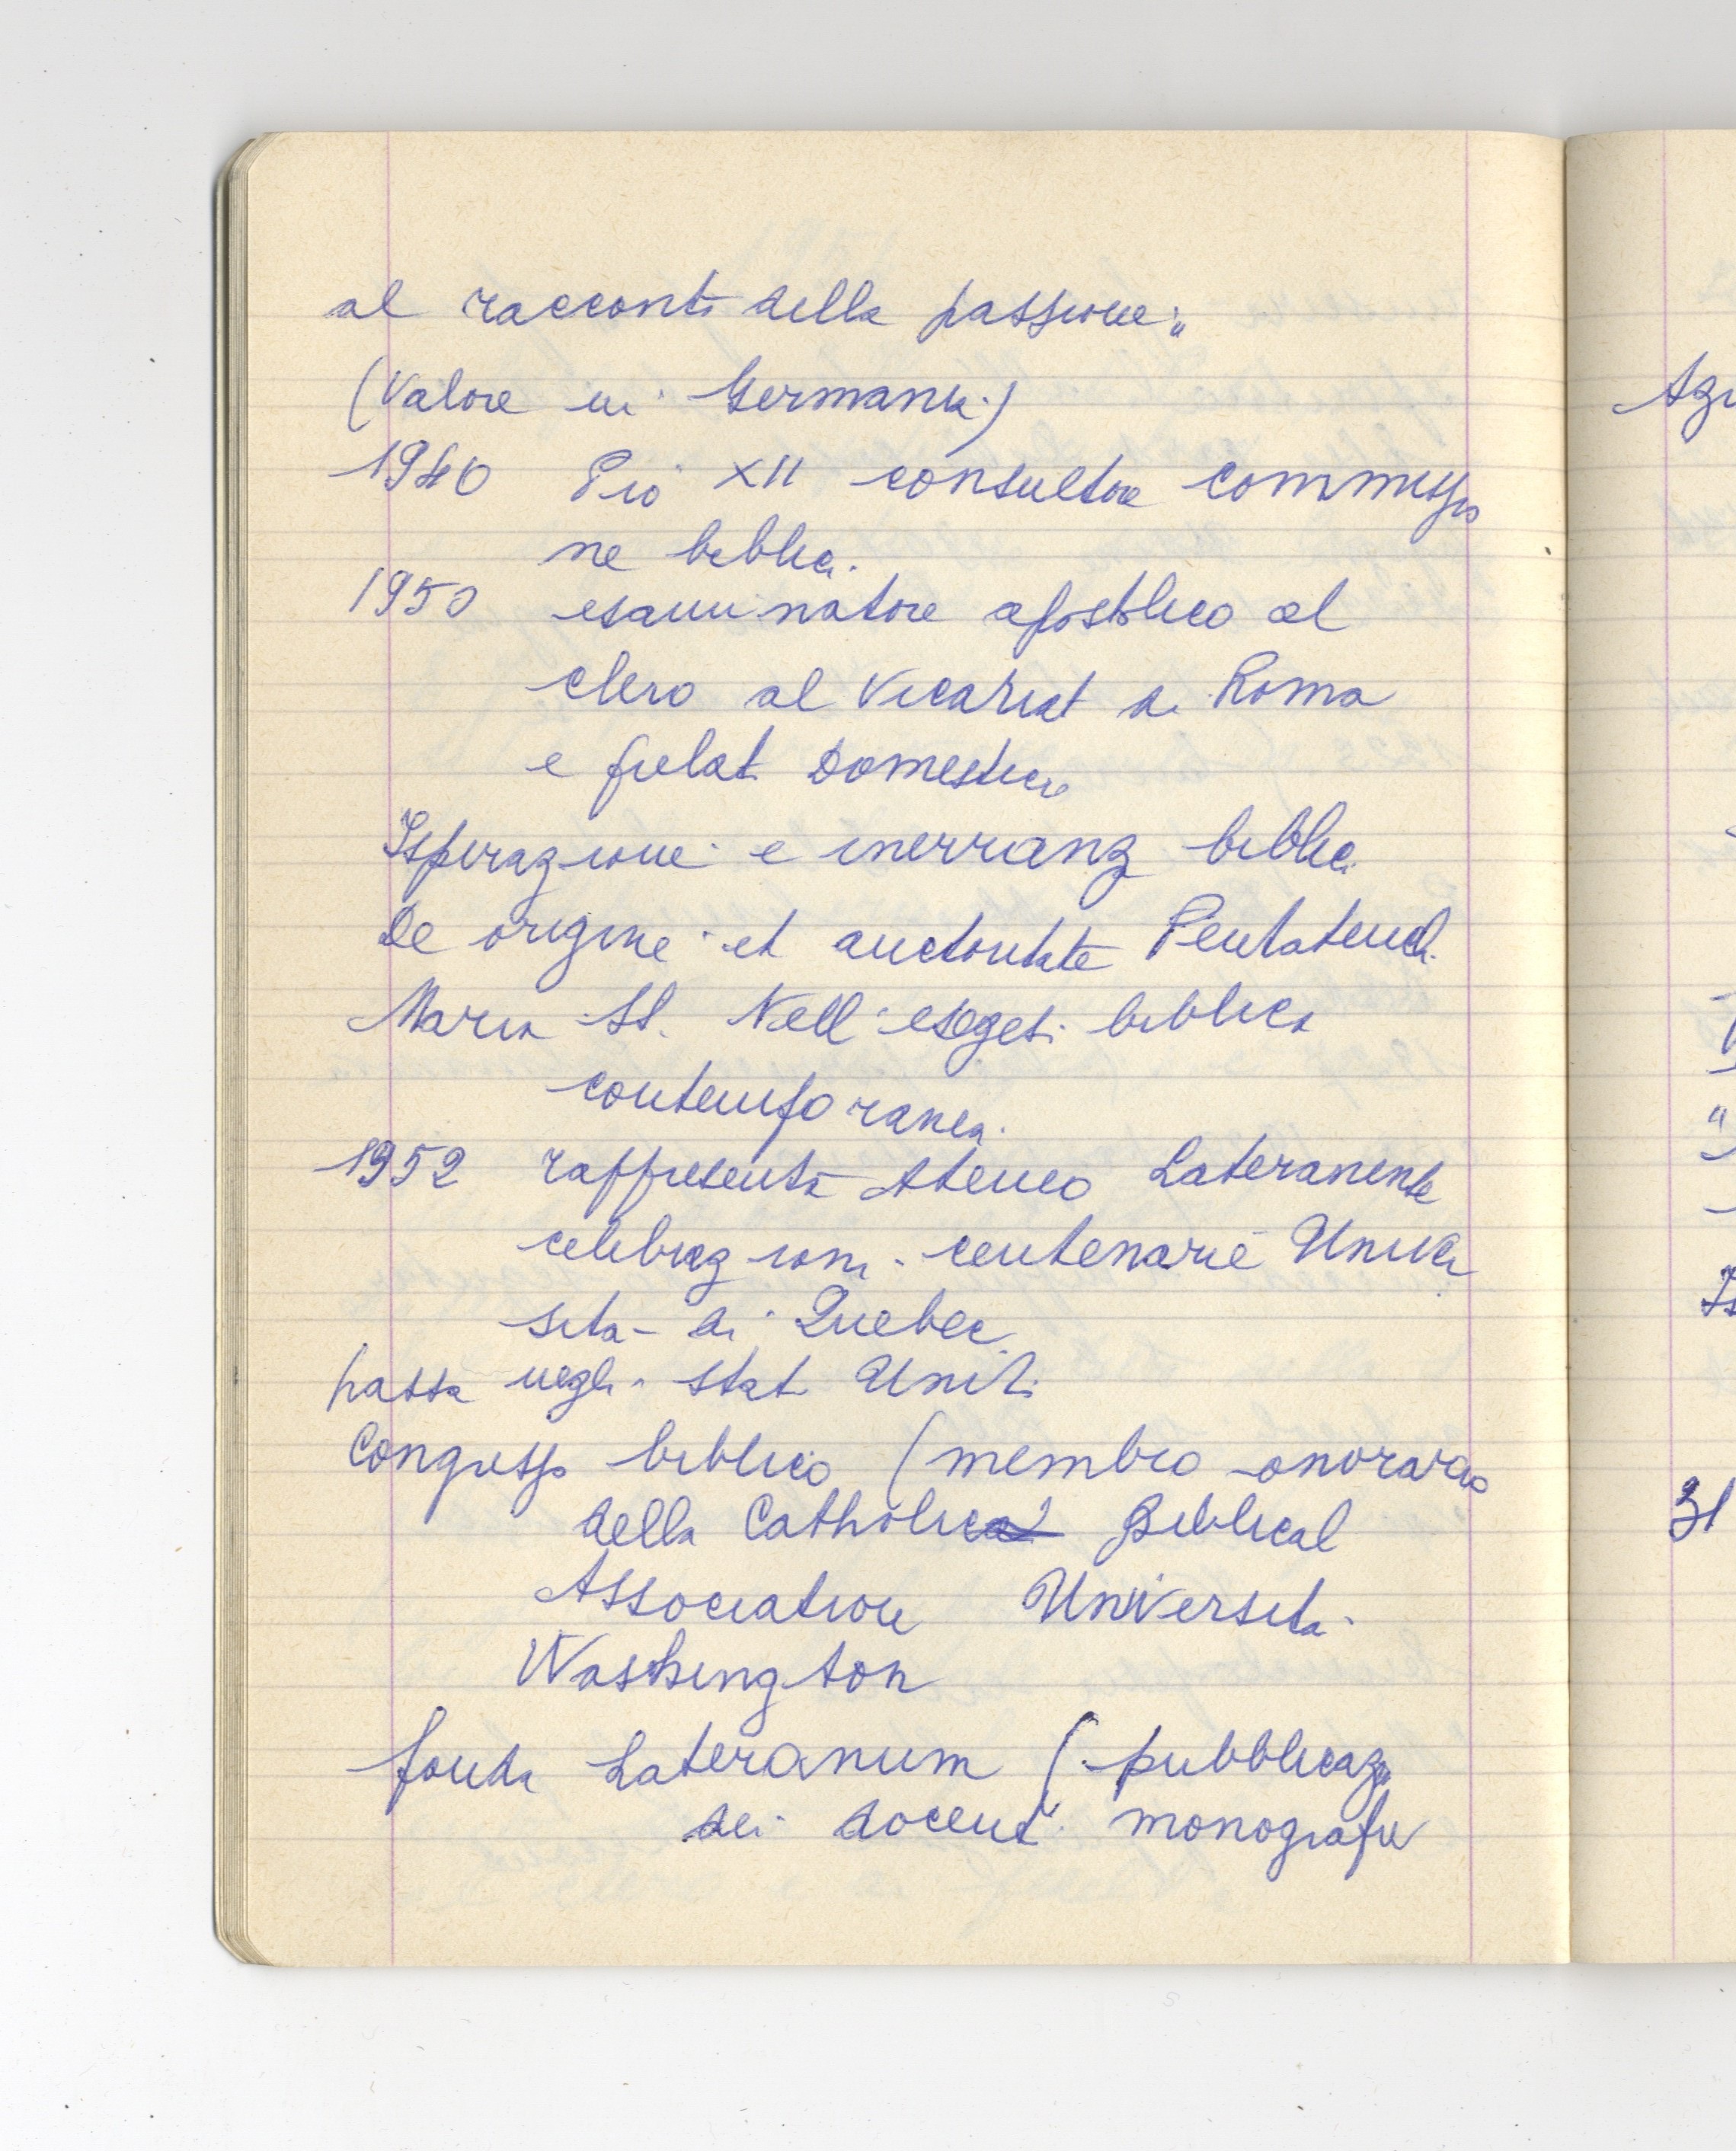 al racconto della passione"
(Valore in Germania)
1940 Pio XII consultore commissio
ne biblica.
1950 esaminatore apostolico al
clero al Vicariat di Roma
e prelat Domestico
Ispirazione e inerranz biblica
De origine et auctoritate Pentateuchi
Maria SS. Nell'esegesi biblica
contemporanea.
1952 rappresenta Ateneo Lateranense
celebrazioni centenarie Univer
sità di Quebec
passa negli Stati Uniti
Congresso biblico (membro onorario
della Catholic Biblical
Association Università
Washington
fonda Lateranum (pubblicaz.
dei docenti monografie
Azi
"
Is
31